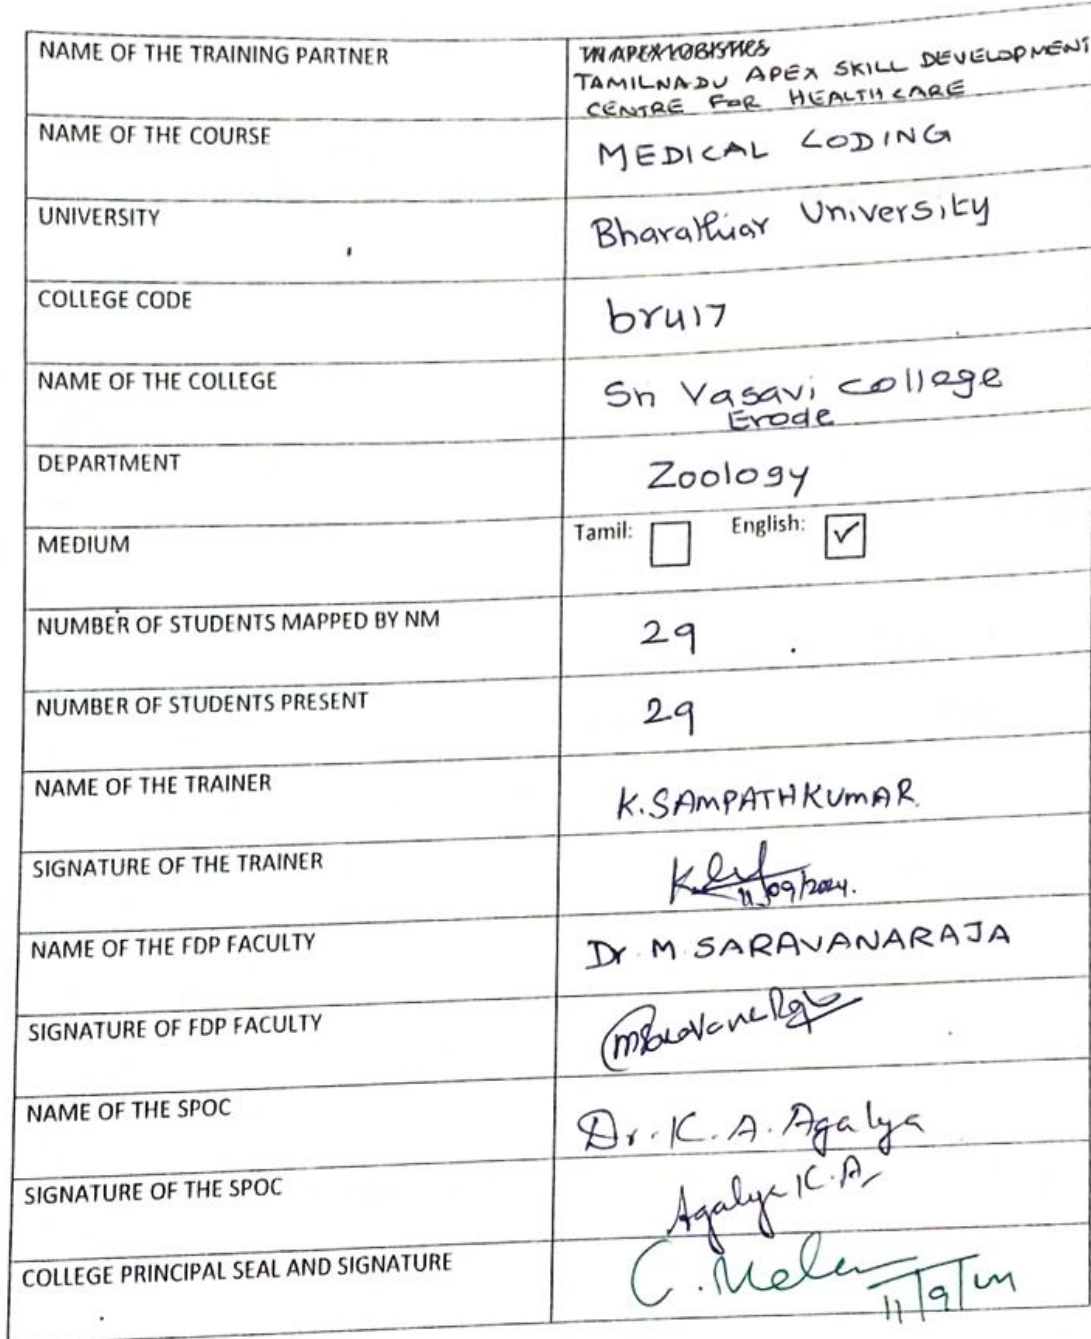 NAME OF THE TRAINING PARTNER
TAMILNADU APEX SKILL DEVELOPMENT
CENTRE FOR HEALTHCARE
NAME OF THE COURSE
MEDICAL CODING
UNIVERSITY
Bharathiar University
COLLEGE CODE
bru17
NAME OF THE COLLEGE
Sri Vasavi College
Erode
DEPARTMENT
Zoology
MEDIUM
Tamil: English: ✓
NUMBER OF STUDENTS MAPPED BY NM
29
NUMBER OF STUDENTS PRESENT
29
NAME OF THE TRAINER
K. SAMPATHKUMAR
SIGNATURE OF THE TRAINER
11/09/2024.
NAME OF THE FDP FACULTY
Dr. M. SARAVANARAJA
SIGNATURE OF FDP FACULTY
NAME OF THE SPOC
Dr. K. A. Agalya
SIGNATURE OF THE SPOC
Agalya K.A
COLLEGE PRINCIPAL SEAL AND SIGNATURE
11/9/